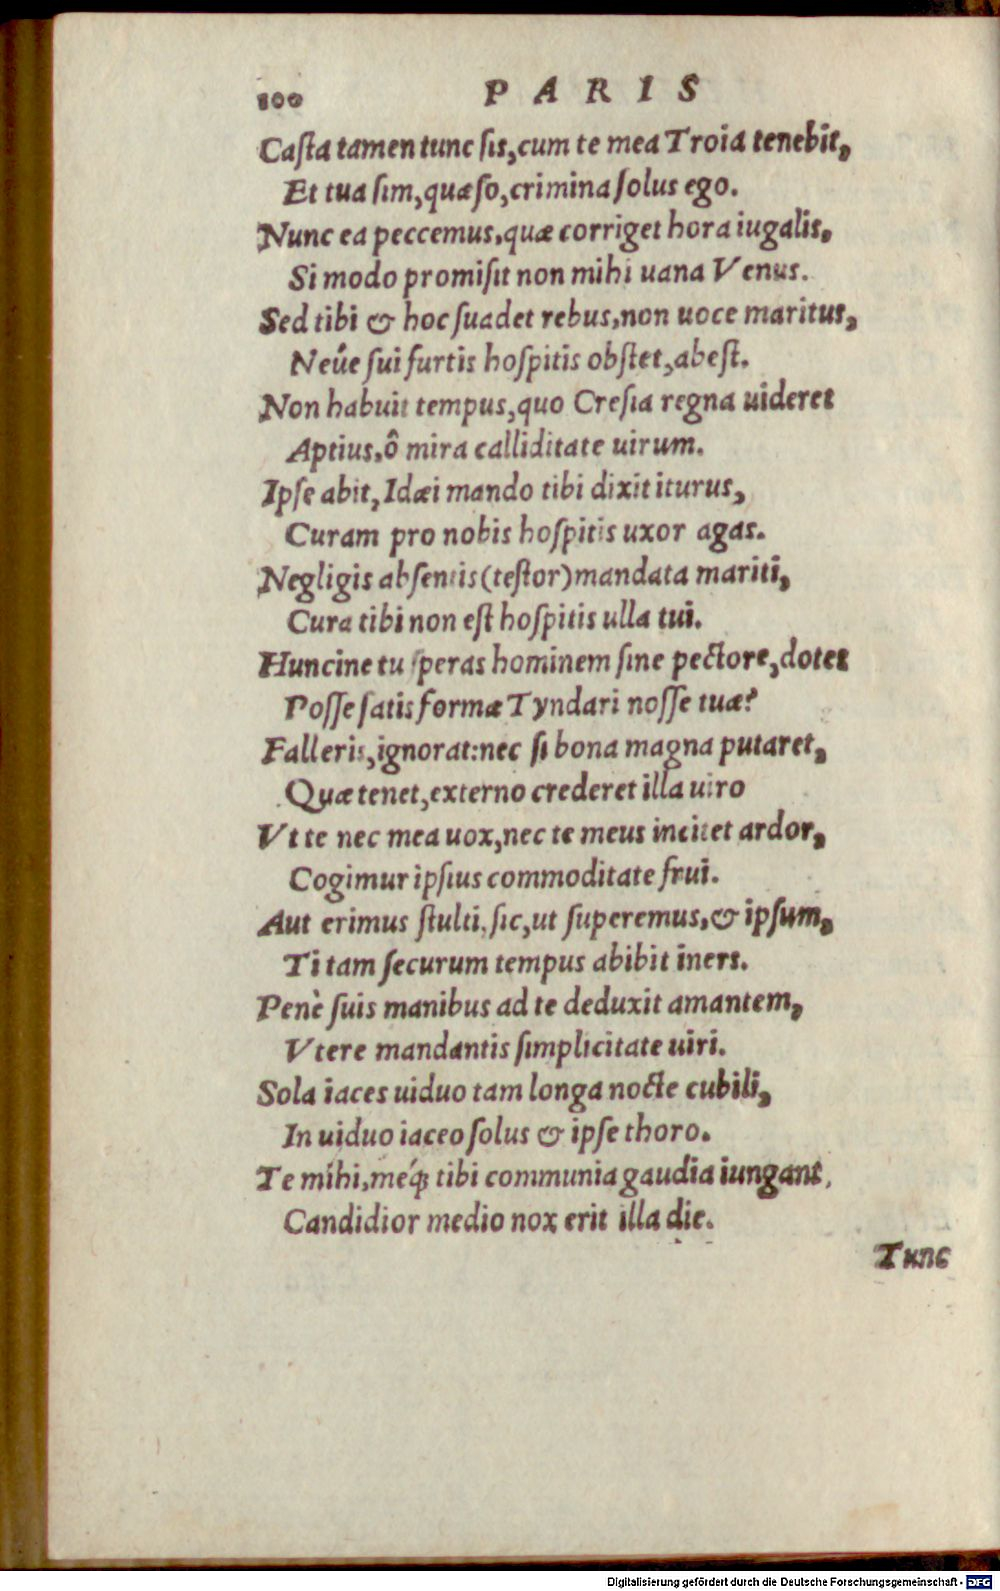 100 PARIS
Caſta tamen tunc ſis, cum te mea Troia tenebit,
Et tua ſim, quæſo, crimina ſolus ego.
Nunc ea peccemus, quæ corriget hora iugalis,
Si modo promiſit non mihi uana Venus.
Sed tibi & hoc ſuadet rebus, non uoce maritus,
Neûe ſui furtis hoſpitis obſtet, abeſt.
Non habuit tempus, quo Creſia regna uideret
Aptius, ô mira calliditate uirum.
Ipſe abit, Idæi mando tibi dixit iturus,
Curam pro nobis hoſpitis uxor agas.
Negligis abſentis (teſtor) mandata mariti,
Cura tibi non eſt hoſpitis ulla tui.
Huncine tu ſperas hominem ſine pectore, dotes
Poſſe ſatis formæ Tyndari noſſe tuæ?
Falleris, ignorat: nec ſi bona magna putaret,
Quæ tenet, externo crederet illa uiro
Vt te nec mea uox, nec te meus incitet ardor,
Cogimur ipſius commoditate frui.
Aut erimus ſtulti, ſic, ut ſuperemus, & ipſum,
Ti tam ſecurum tempus abibit iners.
Penè ſuis manibus ad te deduxit amantem,
Vtere mandantis ſimplicitate uiri.
Sola iaces uiduo tam longa nocte cubili,
In uiduo iaceo ſolus & ipſe thoro.
Te mihi, méq; tibi communia gaudia iungant,
Candidior medio nox erit illa die.
Tunc
Digitalisierung gefördert durch die Deutsche Forschungsgemeinschaft - DFG